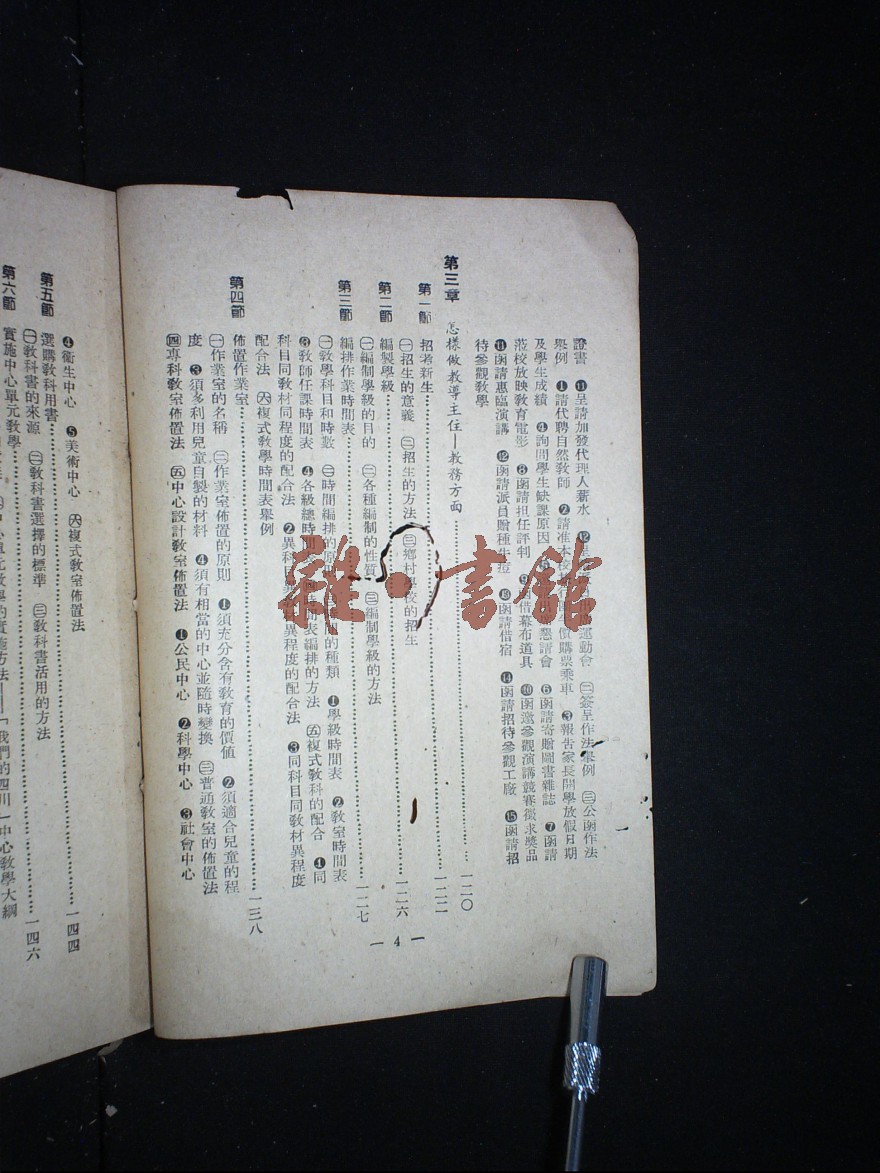 證書 ⓫呈請加發代理人薪水 ⓬ 運動會 ㊁簽呈作法舉例 ㊂公函作法
舉例 ❶請代聘自然教師 ❷請准本校 價購票乘車 ❸報告家長開學放假日期
及學生成績 ❹詢問學生缺課原因 懇請會 ❻函請寄贈圖書雜誌 ❼函請
蒞校放映教育電影 ❽函請担任評判 ❾ 借幕布道具 ❿函邀參觀演講競賽徵求獎品
⓫函請惠臨演講 ⓬函請派員贈種牛痘 ⓭函請借宿 ⓮函請招待參觀工廠 ⓯函請招
待參觀教學
第三章 怎樣做教導主任——教務方面……一二〇
第一節 招考新生……一二二
㊀招生的意義 ㊁招生的方法 ㊂鄉村學校的招生
第二節 編製學級……一二六
㊀編制學級的目的 ㊁各種編制的性質 ㊂編制學級的方法
第三節 編排作業時間表……一二七
㊀教學科目和時數 ㊁時間編排的原 間的種類 ❶學級時間表 ❷教室時間表
❸教師任課時間表 ❹各級總時間表 時間表編排的方法 ㊄複式教科的配合 ❶同
科目同教材同程度的配合法 ❷異科目 異程度的配合法 ❸同科目同教材異程度
配合法 ㊅複式教學時間表舉例
第四節 佈置作業室……一三八
㊀作業室的名稱 ㊁作業室佈置的原則 ❶須充分含有教育的價值 ❷須適合兒童的程
度 ❸須多利用兒童自製的材料 ❹須有相當的中心並隨時變換 ㊂普通教室的佈置法
㊃專科教室佈置法 ㊄中心設計教室佈置法 ❶公民中心 ❷科學中心 ❸社會中心
— 4 —
❹衛生中心 ❺美術中心 ㊅複式教室佈置法
第五節 選購教科用書……一四四
㊀教科書的來源 ㊁教科書選擇的標準 ㊂教科書活用的方法
第六節 實施中心單元教學……一四六
中心單元教學的實施方法——「我們的四川」中心教學大綱
雜·書館